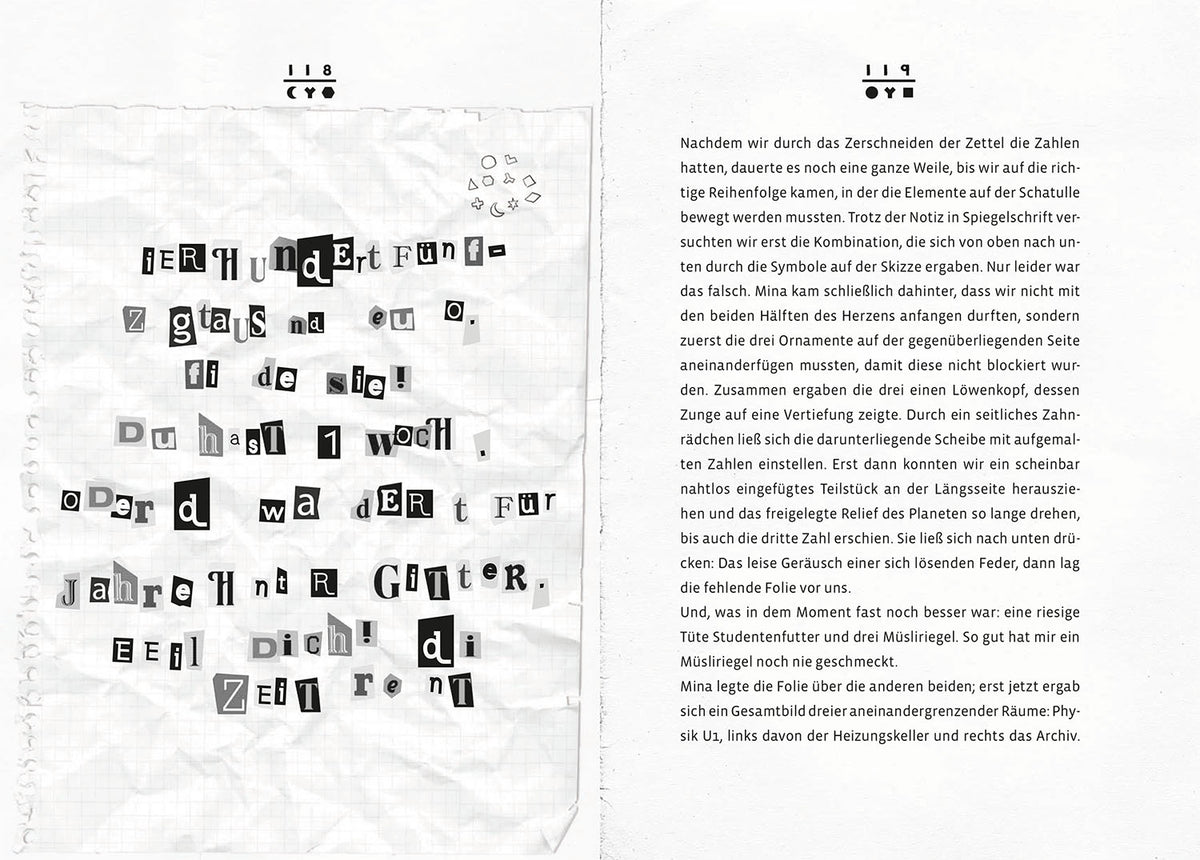 118
iER HUndErt Fünf-
Z gtaUS nd eu o.
fi de sie!
Du hasT 1 wocH .
oDer d wa dER t Für
JahreH nt R GiTter.
EEil Dich! di
ZEiT re nT
119
Nachdem wir durch das Zerschneiden der Zettel die Zahlen
hatten, dauerte es noch eine ganze Weile, bis wir auf die rich-
tige Reihenfolge kamen, in der die Elemente auf der Schatulle
bewegt werden mussten. Trotz der Notiz in Spiegelschrift ver-
suchten wir erst die Kombination, die sich von oben nach un-
ten durch die Symbole auf der Skizze ergaben. Nur leider war
das falsch. Mina kam schließlich dahinter, dass wir nicht mit
den beiden Hälften des Herzens anfangen durften, sondern
zuerst die drei Ornamente auf der gegenüberliegenden Seite
aneinanderfügen mussten, damit diese nicht blockiert wur-
den. Zusammen ergaben die drei einen Löwenkopf, dessen
Zunge auf eine Vertiefung zeigte. Durch ein seitliches Zahn-
rädchen ließ sich die darunterliegende Scheibe mit aufgemal-
ten Zahlen einstellen. Erst dann konnten wir ein scheinbar
nahtlos eingefügtes Teilstück an der Längsseite herauszie-
hen und das freigelegte Relief des Planeten so lange drehen,
bis auch die dritte Zahl erschien. Sie ließ sich nach unten drü-
cken: Das leise Geräusch einer sich lösenden Feder, dann lag
die fehlende Folie vor uns.
Und, was in dem Moment fast noch besser war: eine riesige
Tüte Studentenfutter und drei Müsliriegel. So gut hat mir ein
Müsliriegel noch nie geschmeckt.
Mina legte die Folie über die anderen beiden; erst jetzt ergab
sich ein Gesamtbild dreier aneinandergrenzender Räume: Phy-
sik U1, links davon der Heizungskeller und rechts das Archiv.